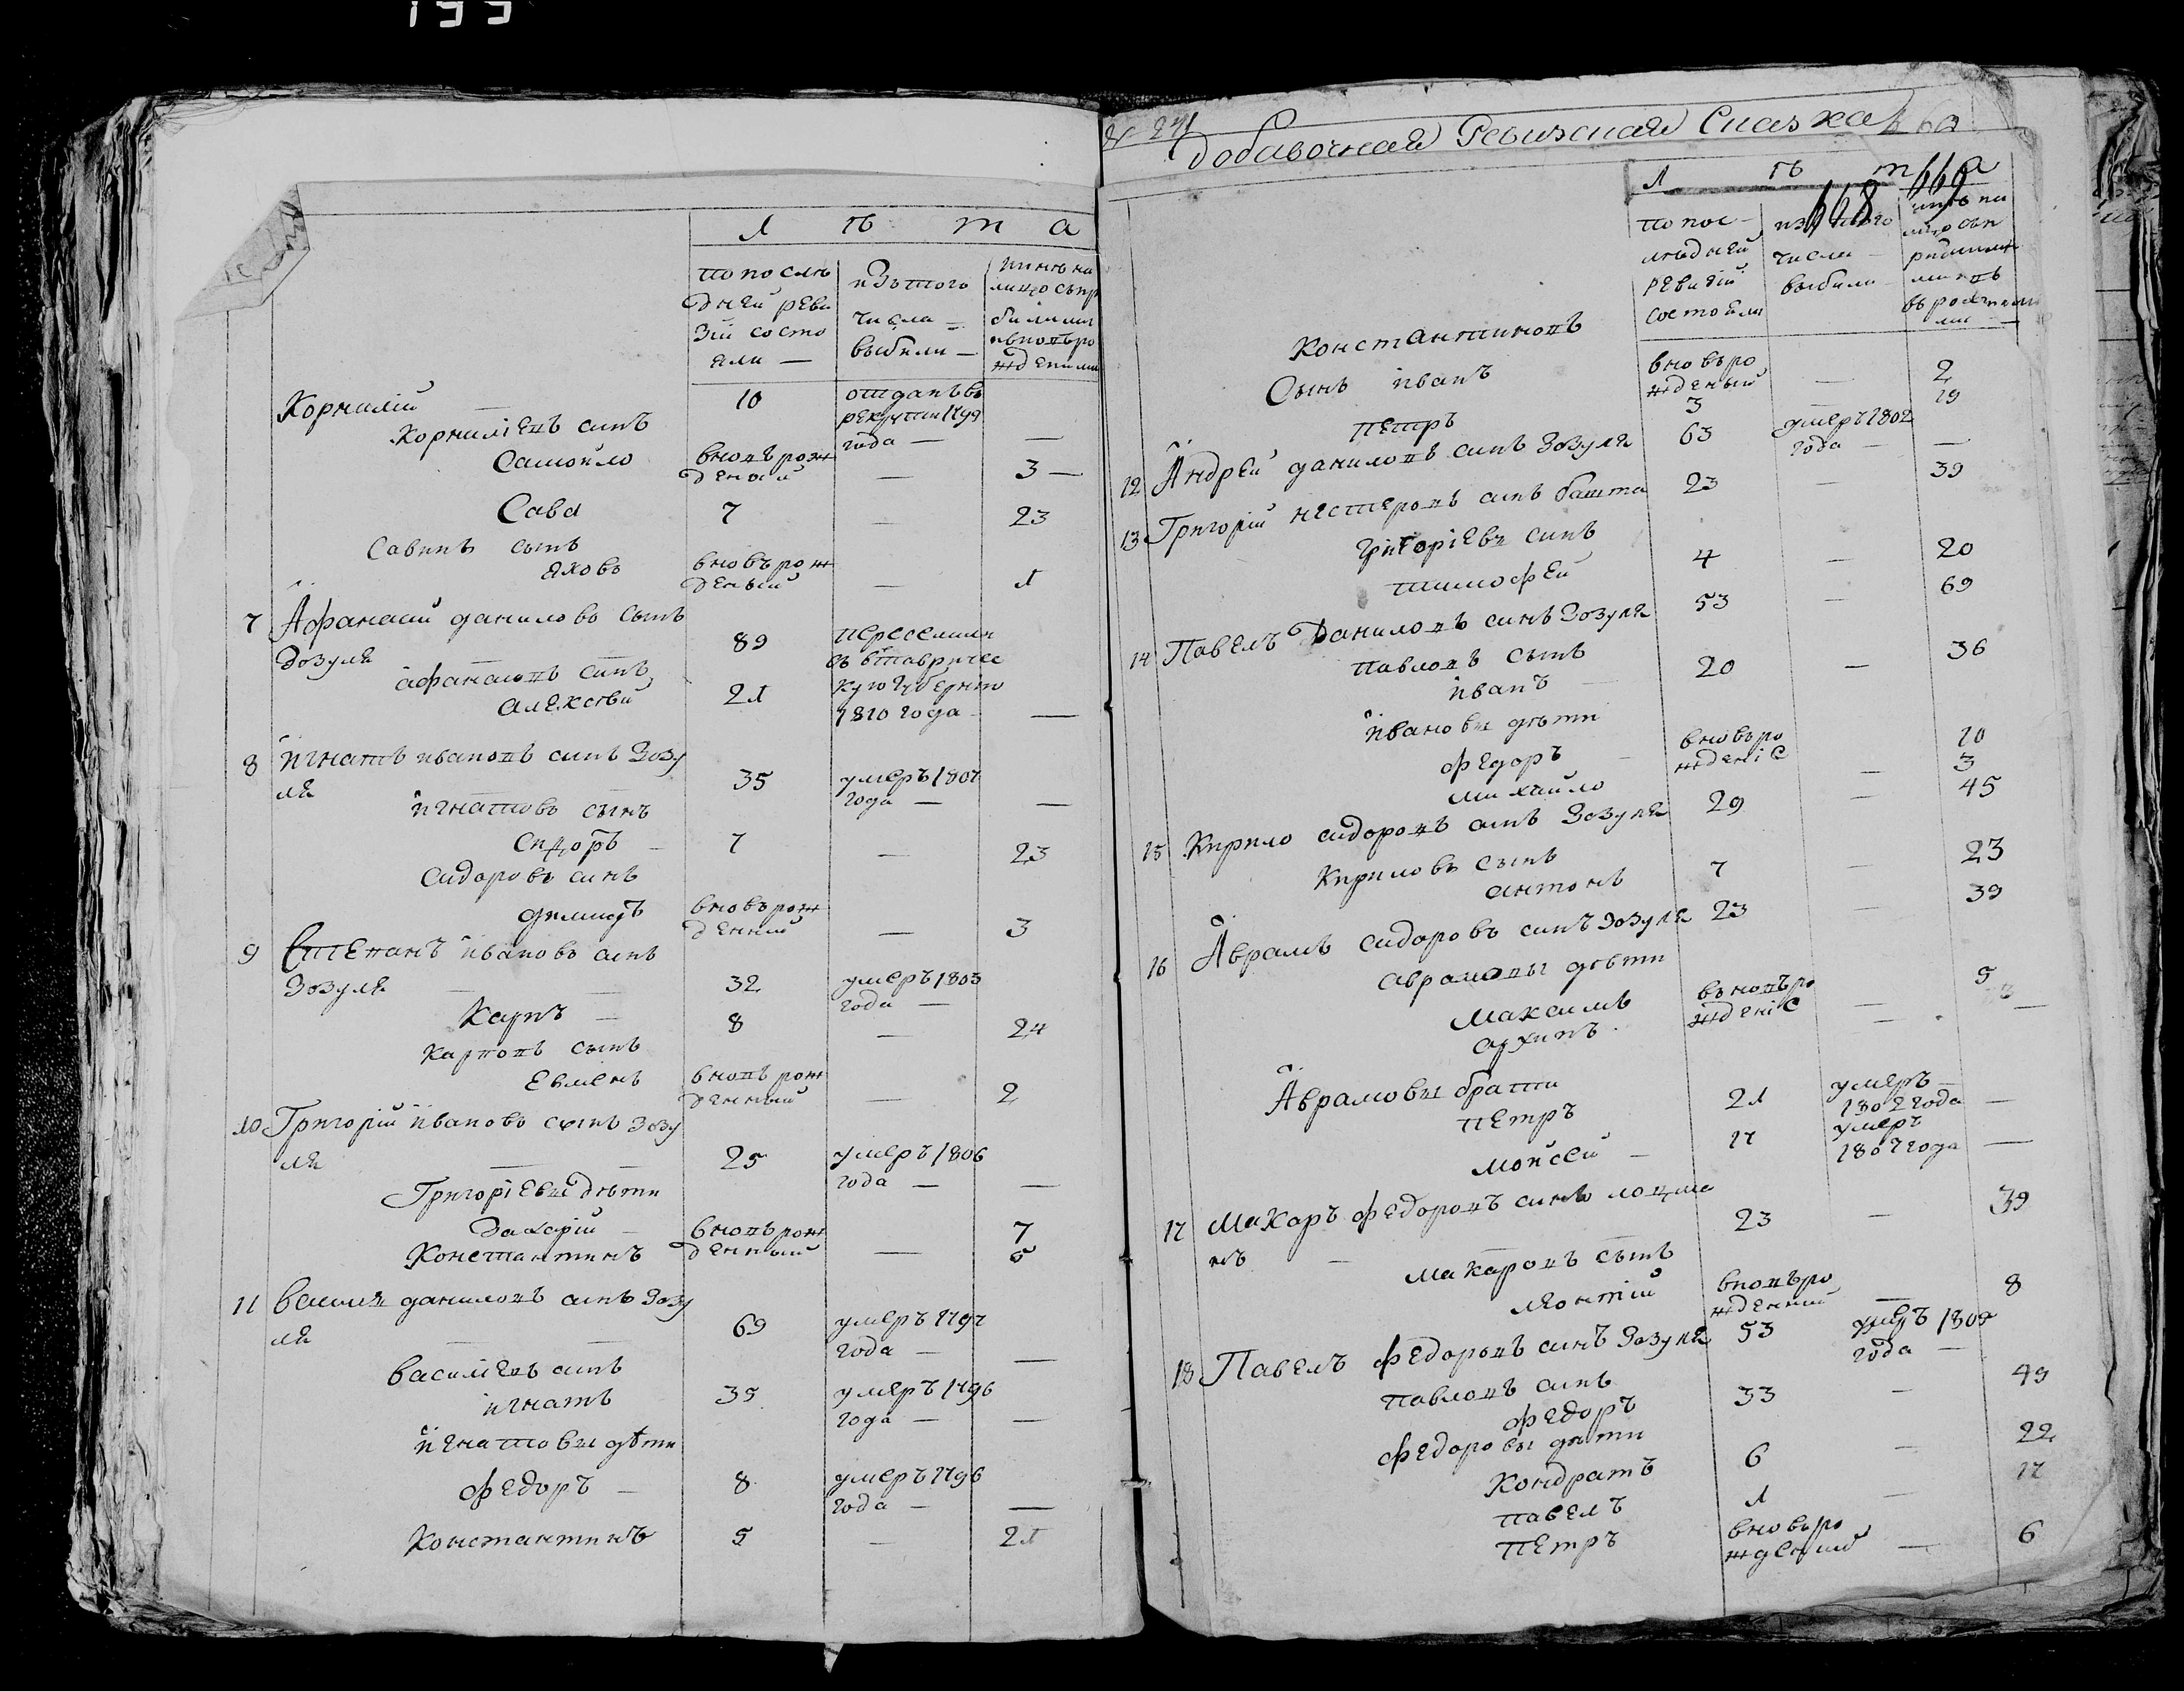 199
Л ѣ т а
по послѣ изътого нинѣ на
дней реви числа — лицо съпри
зіи состо выбыли — былими
яли — ивновъро
жденими
Корнилій — 10 отданъ въ
рекрути 1799
года — —
Корниліевъ синъ
Самойло вновъ рож
деной — 3 —
Сава 7 — 23
Савинъ сынъ
Яковъ вновърож
деный — 1
7 Афанасій даниловъ сынъ
Зозуля 89 переселили
афанасовъ синъ съ въ Тавричес
алексѣй 21 кую губернію
1810 года — —
8 игнатъ ивановъ синъ Зозу
ля 35 умеръ 1807
года — —
игнатовъ сынъ
Сидоръ — 7 — 23
Сидоровъ синъ
димидъ вновърож
денний — 3
9 Степанъ ивановъ синъ
Зозуля — — 32 умеръ 1803
года —
Карпъ — 8 — 24
Карповъ сынъ
Евменъ вновъ рож
денный — 2
10 Григорій ивановъ сынъ Зозу
ля — — 25 умеръ 1806
года — —
Григоріевы дѣти
Захарій — вновърож 7
Константинъ денный — 5
11 василя даниловъ синъ Зозу
ля — — 69 умеръ 1797
года — —
василіевъ синъ
игнатъ 35 умеръ 1796
года — —
игнатовы дѣти
федоръ — 8 умеръ 1796
года — —
Константинъ 5 — 21
№ 241
Добавочная Ревизская Сказка
Л ѣ т а
668 669
по пос изътого нинѣ на
лѣдней числа — лицо съп
ревизіи выбыли —
состояли въ рожденими
Константиновъ
Сынъ иванъ вновъро
жденый — 2
петръ 3 — 19
12 Андрей даниловъ синъ Зозуля 63 умеръ 1802
года — —
13 Григорій нестеровъ синъ башта 23 — 39
григоріевъ синъ
тимофей 4 — 20
14 Павелъ Даниловъ синъ Зозуля 53 — 69
павловъ сынъ
иванъ — 20 — 36
ивановы дѣти
федоръ — вновъро 10
михайло жденіе — 3
15 Кирило сидоровъ синъ Зозуля 29 — 45
Кириловъ сынъ
антонъ 7 — 23
16 Аврамъ сидоровъ синъ Зозуля 23 — 39
аврамовы дѣти
максимъ въновъро — 5
архипъ жденіе — 3 —
Аврамовы брати
петръ 21 умеръ —
1802 года —
мойсей — 17 умеръ
1807 года —
17 Макаръ федоровъ синъ лоцма
нъ — 23 — 39
макаровъ сынъ
леонтій вновъро
жденний — 8
18 Павелъ федоровъ синъ Зозуля 53 умеръ 1809
года —
павловъ синъ
федоръ 33 — 49
федоровы дѣти
Кондратъ 6 — 22
павелъ 1 — 17
петръ вновъро
жденний — 6